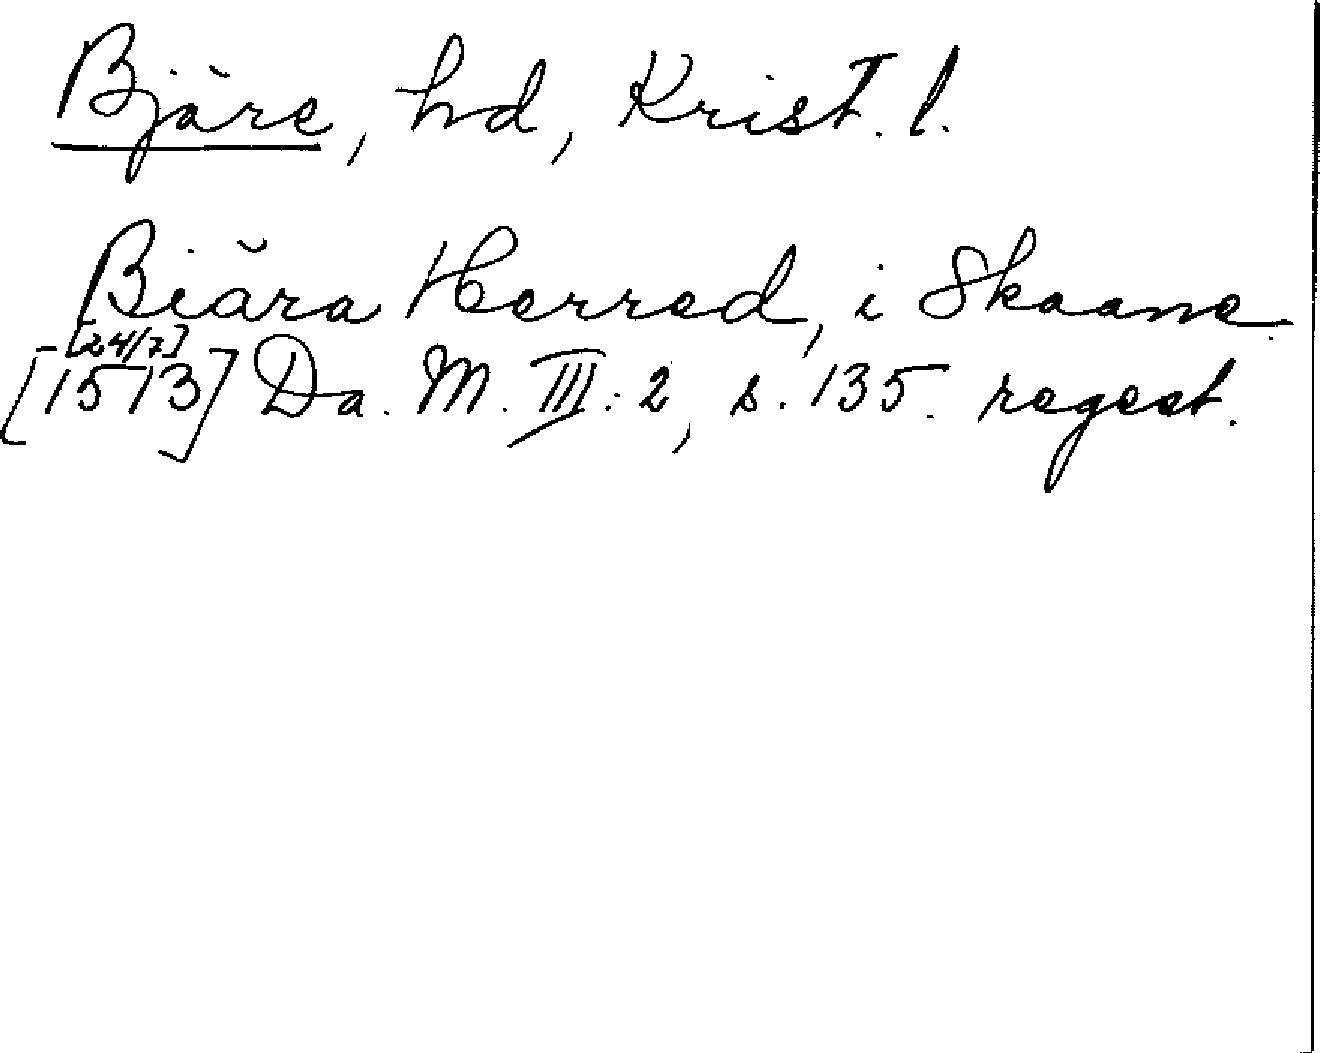 Bjäre, hd, Krist. l.
Biära Herred, i Skaane.
[24/7]
[1513] Da. M. III: 2, s. 135. regest.